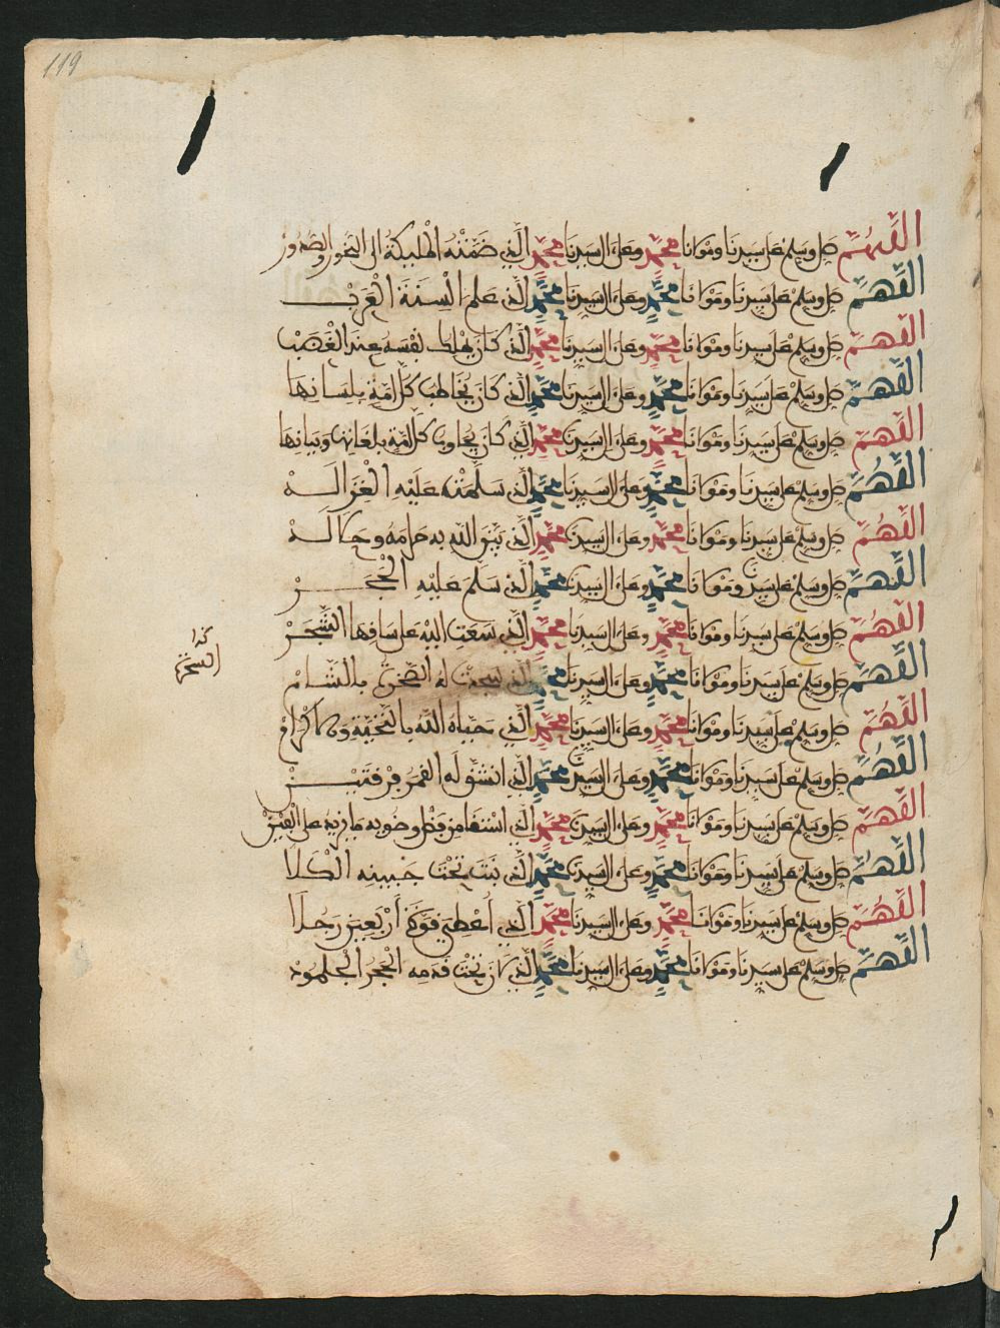 119
اللهم صل وسلم على سيدنا ومولانا محمد وعلى ءال سيدنا محمد الذي ضمته الملـيكة الى النحور والصدور
اللهم صل وسلم على سيدنا ومولانا محمد وعلى ءال سيدنا محمد الذي علم السنة العرب
اللهم صل وسلم على سيدنا ومولانا محمد وعلى ءال سيدنا محمد الذي كان يملك نفسه عند الغضب
اللهم صل وسلم على سيدنا ومولانا محمد وعلى ءال سيدنا محمد الذي كان يخاطب كل امة بلسانها
اللهم صل وسلم على سيدنا ومولانا محمد وعلى ءال سيدنا محمد الذي كان يجاوب كل امة بلغاتها وبيانها
اللهم صل وسلم على سيدنا ومولانا محمد وعلى ءال سيدنا محمد الذي سلمت عليه الغزالة
اللهم صل وسلم على سيدنا ومولانا محمد وعلى ءال سيدنا محمد الذي بين الله به حرامه وحلاله
اللهم صل وسلم على سيدنا ومولانا محمد وعلى ءال سيدنا محمد الذي سلم عليه الحجر
اللهم صل وسلم على سيدنا ومولانا محمد وعلى ءال سيدنا محمد الذي سعت اليه على ساقها الشجر
كذا
اللهم صل وسلم على سيدنا ومولانا محمد وعلى ءال سيدنا محمد الذي سجدت له بالشام
اللهم صل وسلم على سيدنا ومولانا محمد وعلى ءال سيدنا محمد الذي حباه الله بالتحية والاكرام
اللهم صل وسلم على سيدنا ومولانا محمد وعلى ءال سيدنا محمد الذي انشق له القمر فرقتين
اللهم صل وسلم على سيدنا ومولانا محمد وعلى ءال سيدنا محمد الذي من فضل وضويه ما يزيد على
اللهم صل وسلم على سيدنا ومولانا محمد وعلى ءال سيدنا محمد الذي نبت تحت جبينه الكلا
اللهم صل وسلم على سيدنا ومولانا محمد وعلى ءال سيدنا محمد الذي أعطي قوة أربعين رجلا
اللهم صل وسلم على سيدنا ومولانا محمد وعلى ءال سيدنا محمد الذي لان تحت قدمه الحجر الجلمود